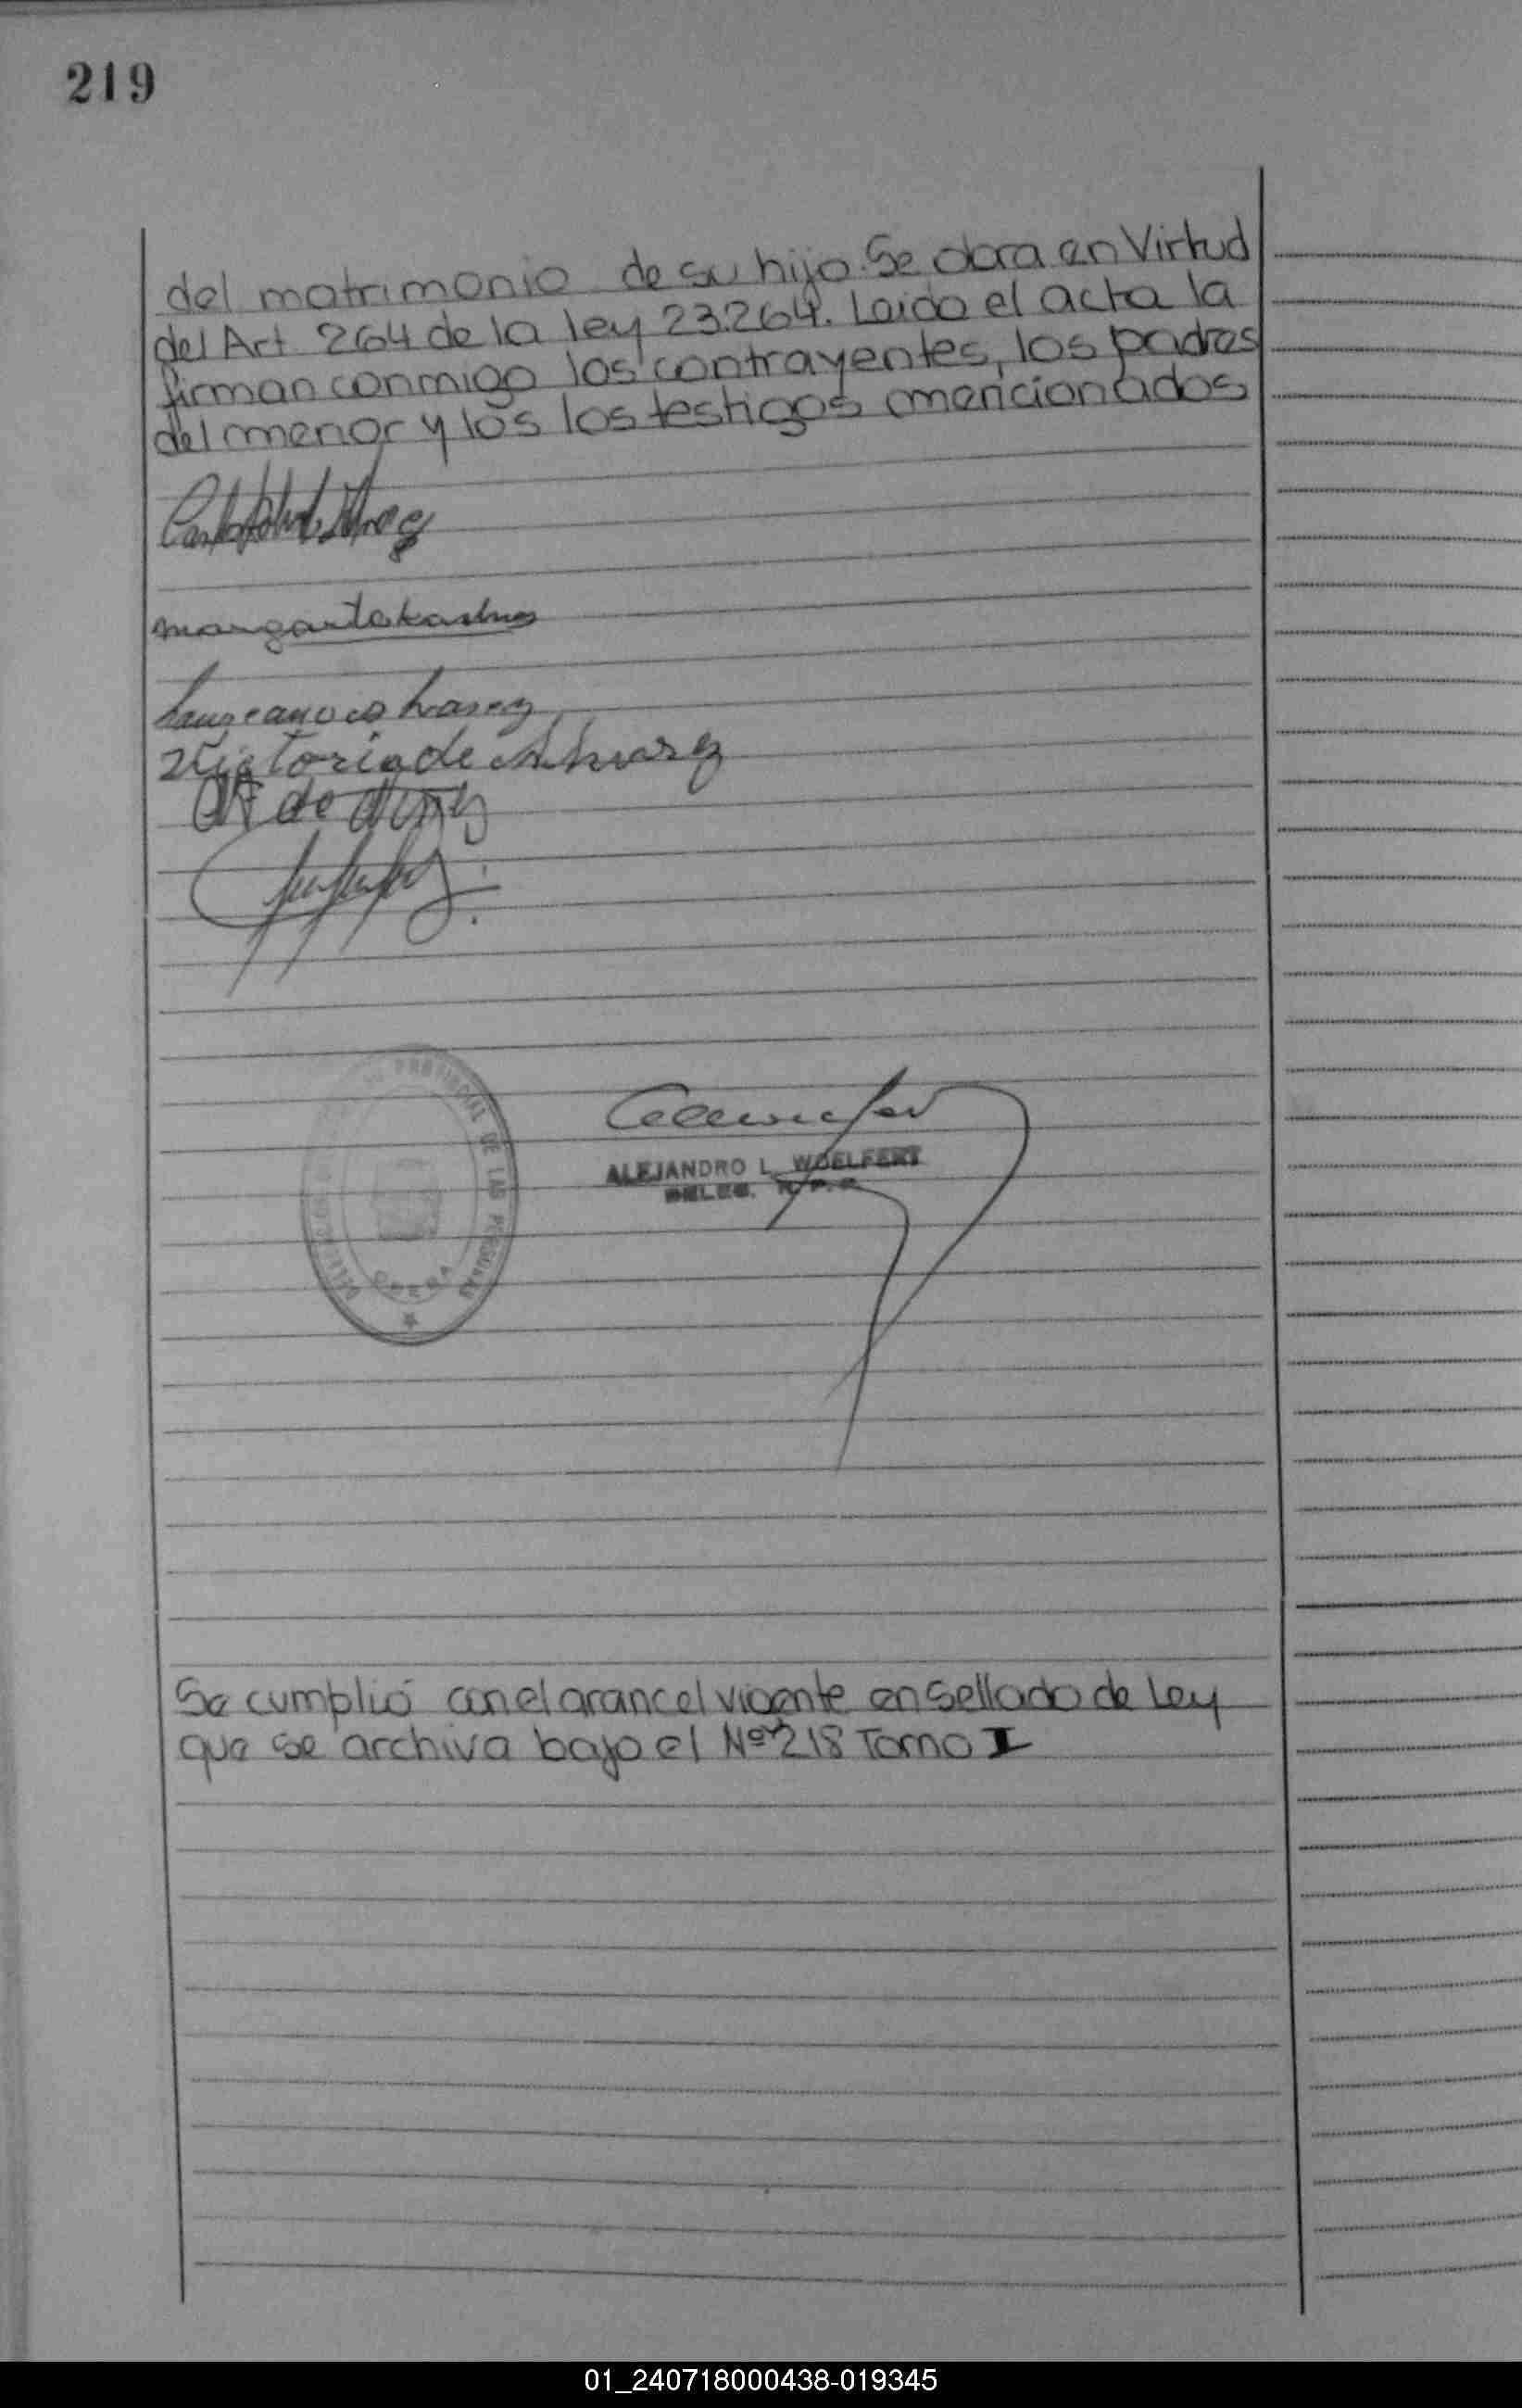 219
del matrimonio de su hijo. Se obra en Virtud
del Art. 264 de la ley 23.264. Leido el acta la
firman conmigo los contrayentes, los padres
del menor y los los testigos mencionados
Victoria de Alvarez
PROVINCIAL DE LAS PERSONAS
OBERA
ALEJANDRO L. WOELFERT
DELEG. R. P. P.
Se cumplió con el arancel vigente en Sellado de Ley
que se archiva bajo el Nº 218 Tomo I
01_240718000438-019345